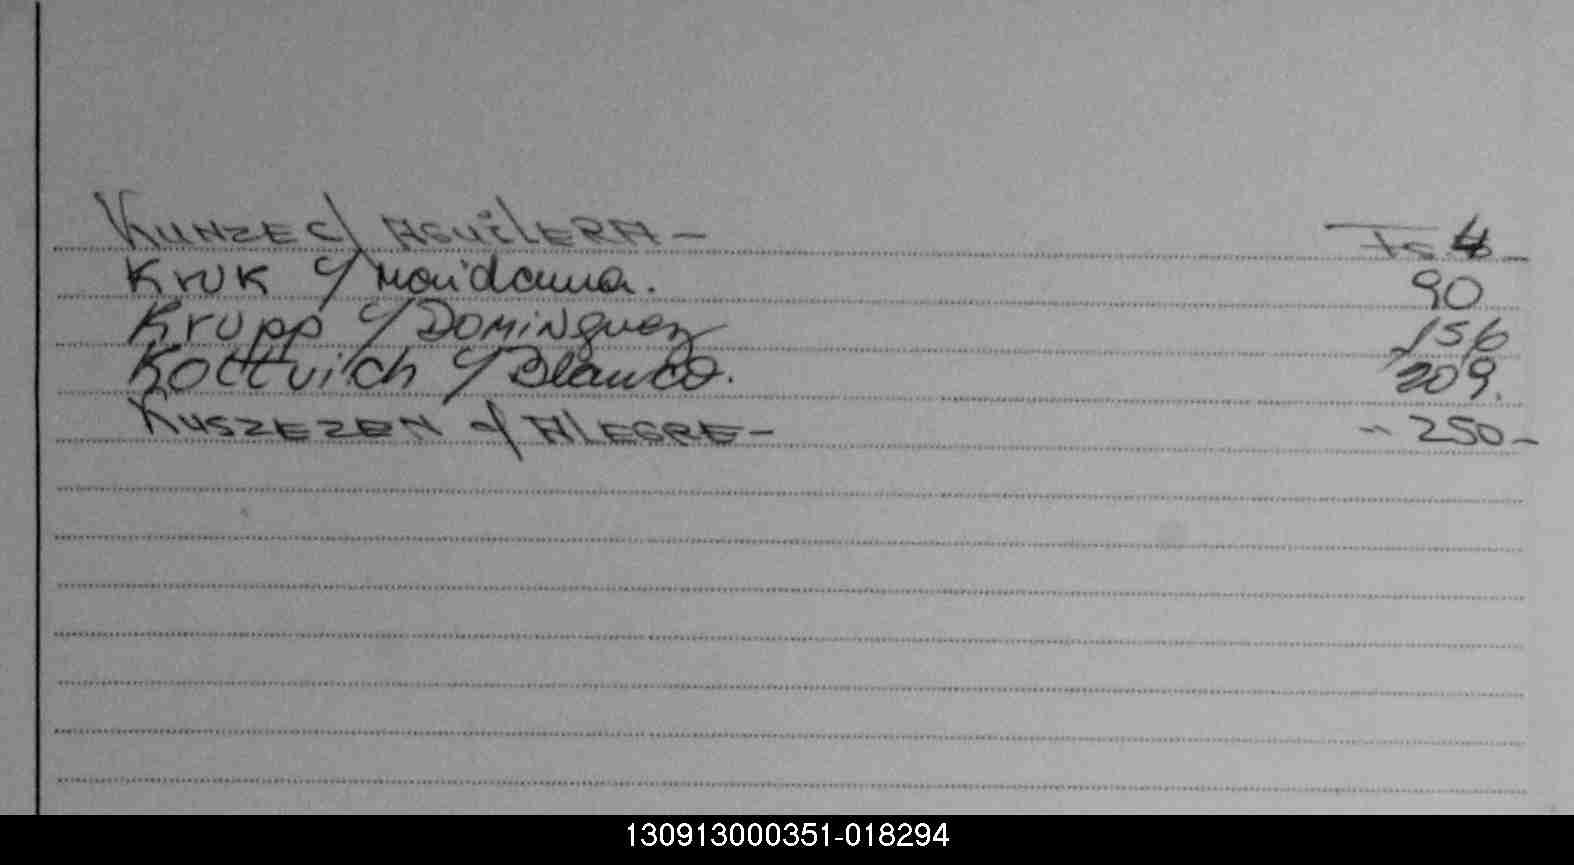 KUNZE C/ AGUILERA - Fs 4 -
Kruk c/ Maidana. 90
Krupp c/ Dominguez 156
Kottvich c/ Blanco. 209.
KUSZEZEN c/ ALEGRE - " 250 -
130913000351-018294